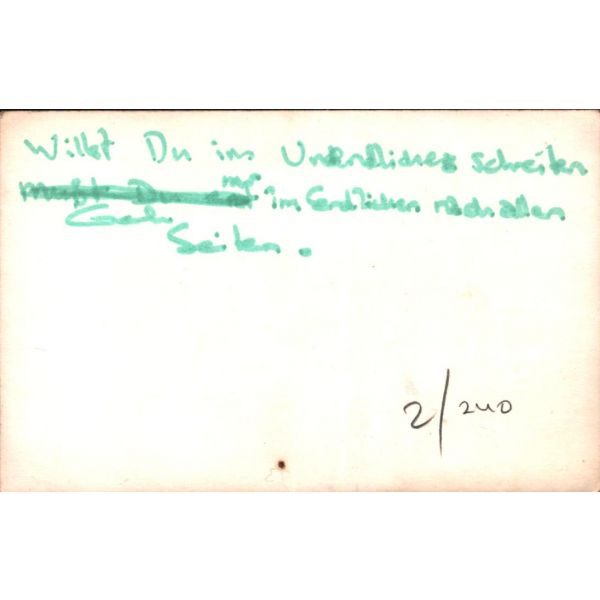 Willst Du ins Unendliche schreiten
mußt Du nur im Endlichen nach allen
Geh
Seiten.
2/240